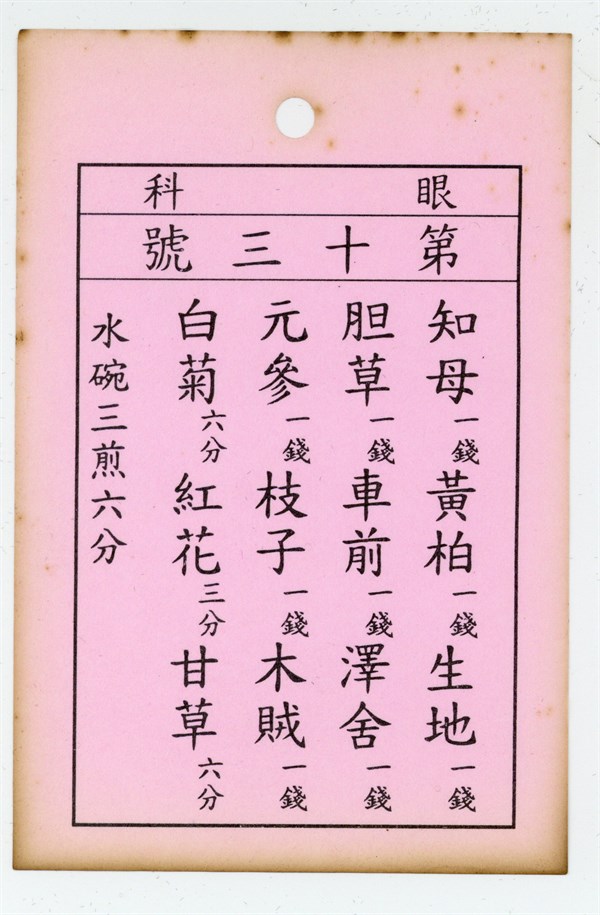 眼科
第十三號
知母一錢黃柏一錢生地一錢
胆草一錢車前一錢澤舍一錢
元參一錢枝子一錢木賊一錢
白菊六分紅花三分甘草六分
水碗三煎六分